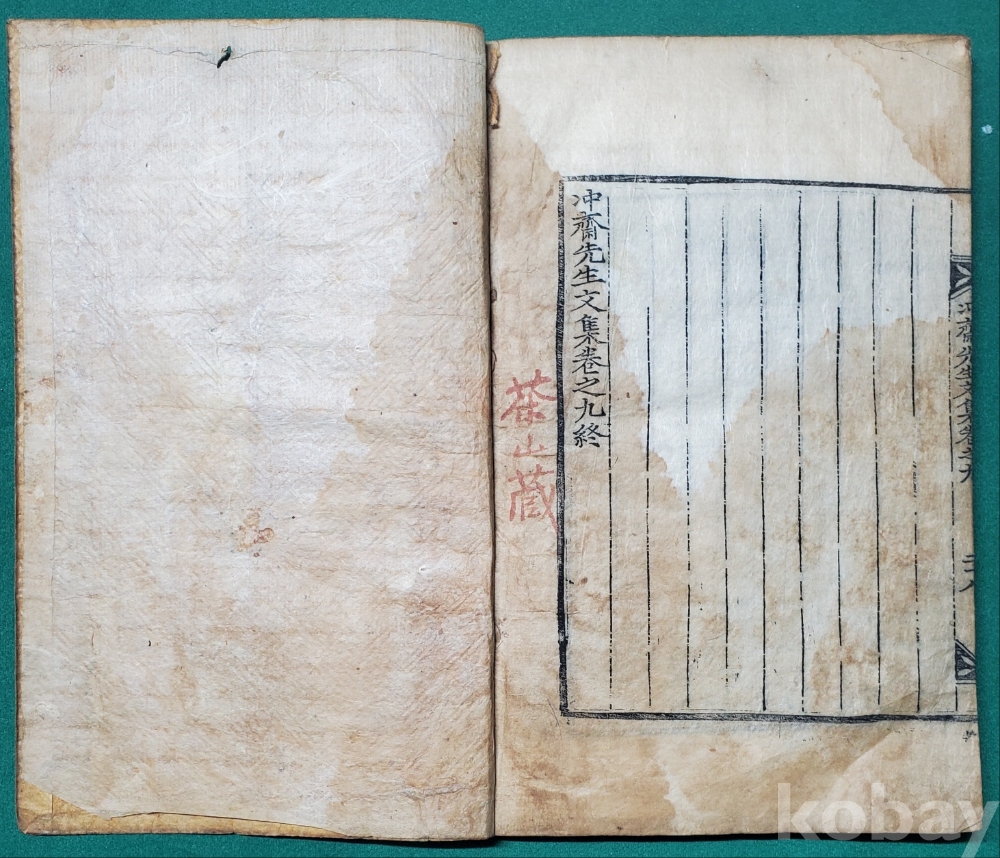 冲齋先生文集卷之九
二八
冲齋先生文集卷之九終
茶山蔵
kobay